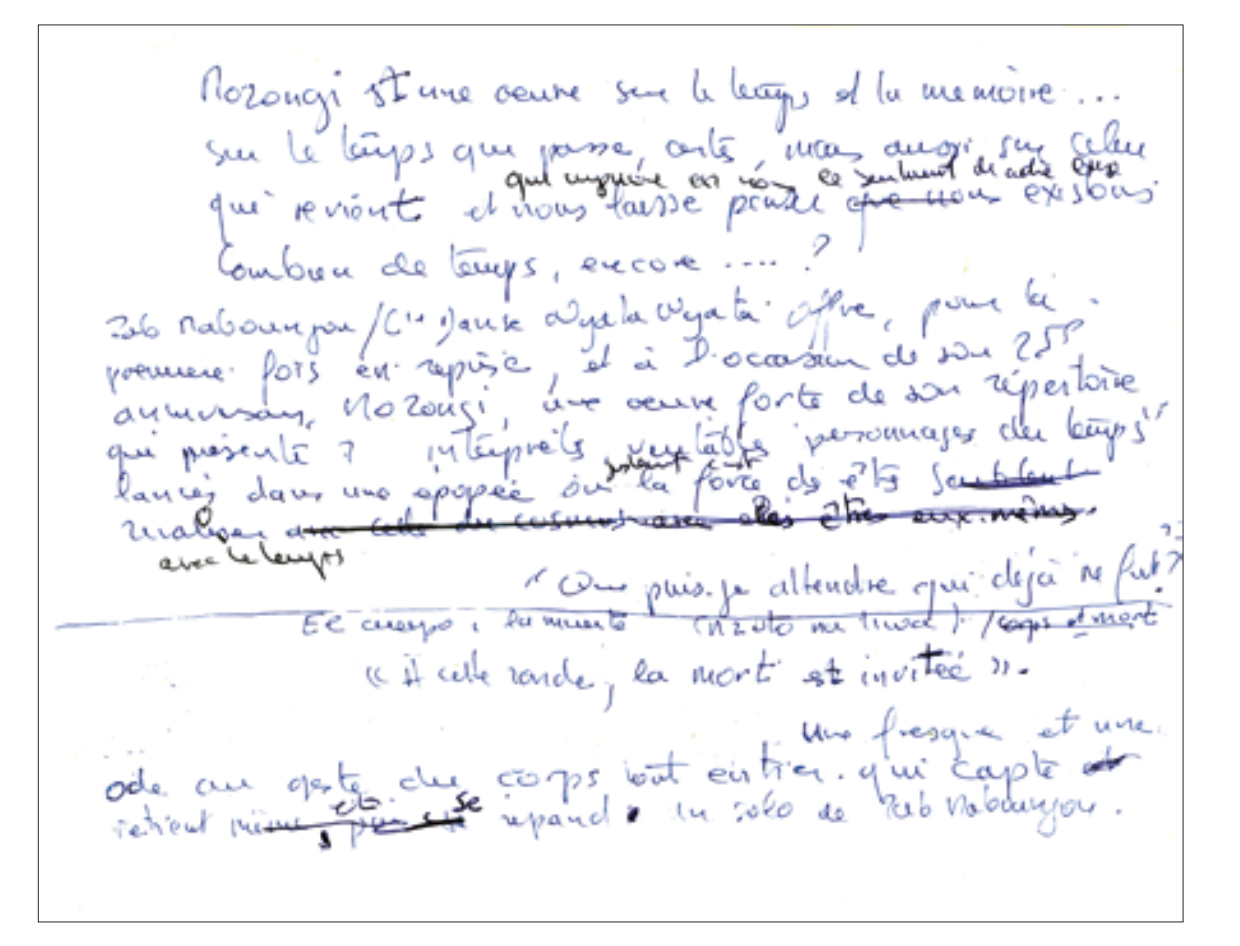 Mozongi est une oeuvre sur le temps et la memoire ...
sur le temps qui passe, certes, mais aussi sur celui
qui en nous ce sentiment de
qui revient et nous laisse penser que nous existons
Combien de temps, encore .... ?
Zab Maboungou / Cie Danse Nyata Nyata offre, pour la
premiere fois en reprise, et à l'occasion de son 25e
anniversaire, Mozongi, une oeuvre forte de son répertoire
qui présente 7 interprètes véritables "personnages du temps"
lancés dans une épopée où la force des êtres semblent
rivaliser avec celle du cosmos avec les êtres eux-mêmes.
avec le temps
"Que puis-je attendre qui déjà ne fut?"
El cuerpo, la muerte (nzuto na liwa) / corps et mort
« À cette ronde, la mort est invitée ».
Une fresque et une
ode au geste du corps tout entier qui capte
retient même puis se répand. un solo de Zab Maboungou.